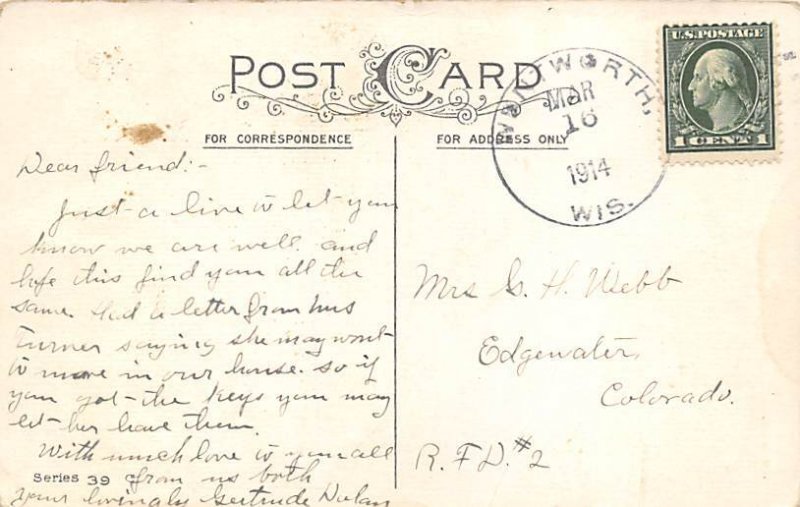 POST CARD
FOR CORRESPONDENCE
FOR ADDRESS ONLY
WALWORTH,
MAR
16
1914
WIS.
U.S. POSTAGE
1 CENT 1
Dear friend:-
Just a line to let you
know we are well and
hope this find you all the
same. Had a letter from Mrs
Turner saying she may want
to move in our house. so if
you got the keys you may
let her have them.
With much love to you all
from us both
your lovingly Gertrude
Series 39 C
Mrs G. H. Webb
Edgewater,
Colorado.
R.F.D. #2